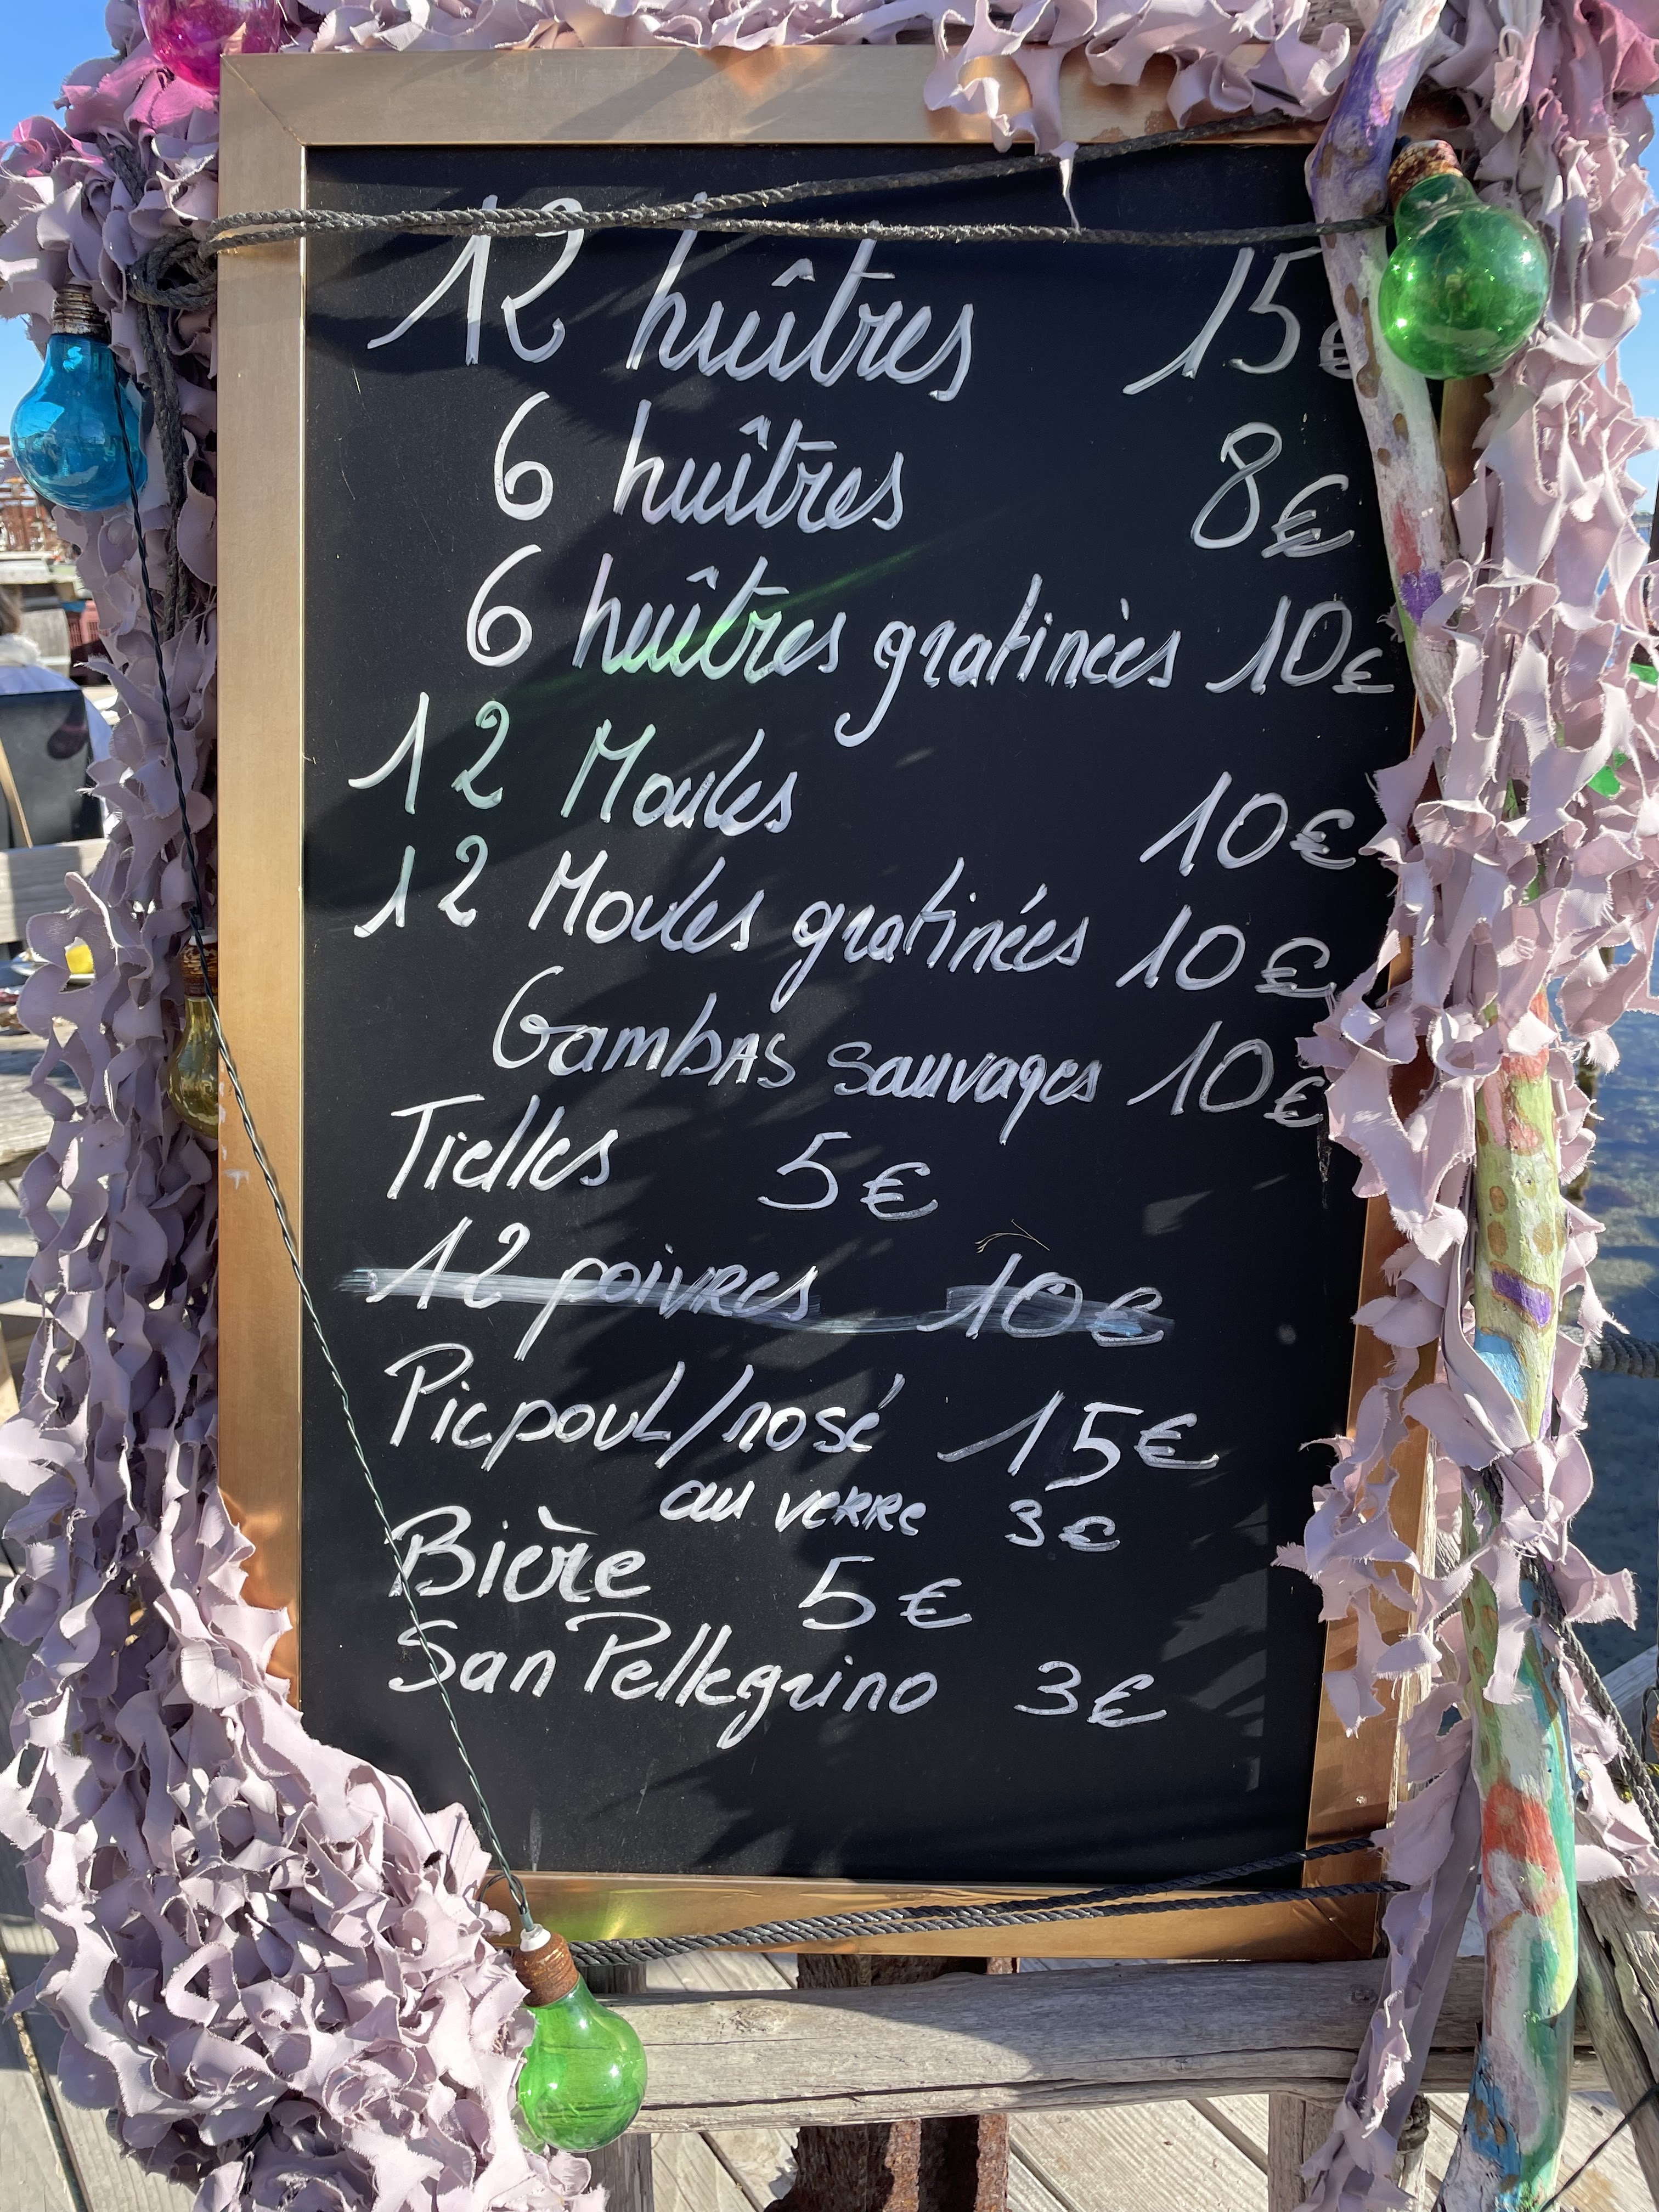 12 huîtres 15€
6 huîtres 8€
6 huîtres gratinées 10€
12 Moules 10€
12 Moules gratinées 10€
Gambas sauvages 10€
Tielles 5€
12 poivres 10€
Picpoul/rosé 15€
au verre 3€
Bière 5€
San Pellegrino 3€